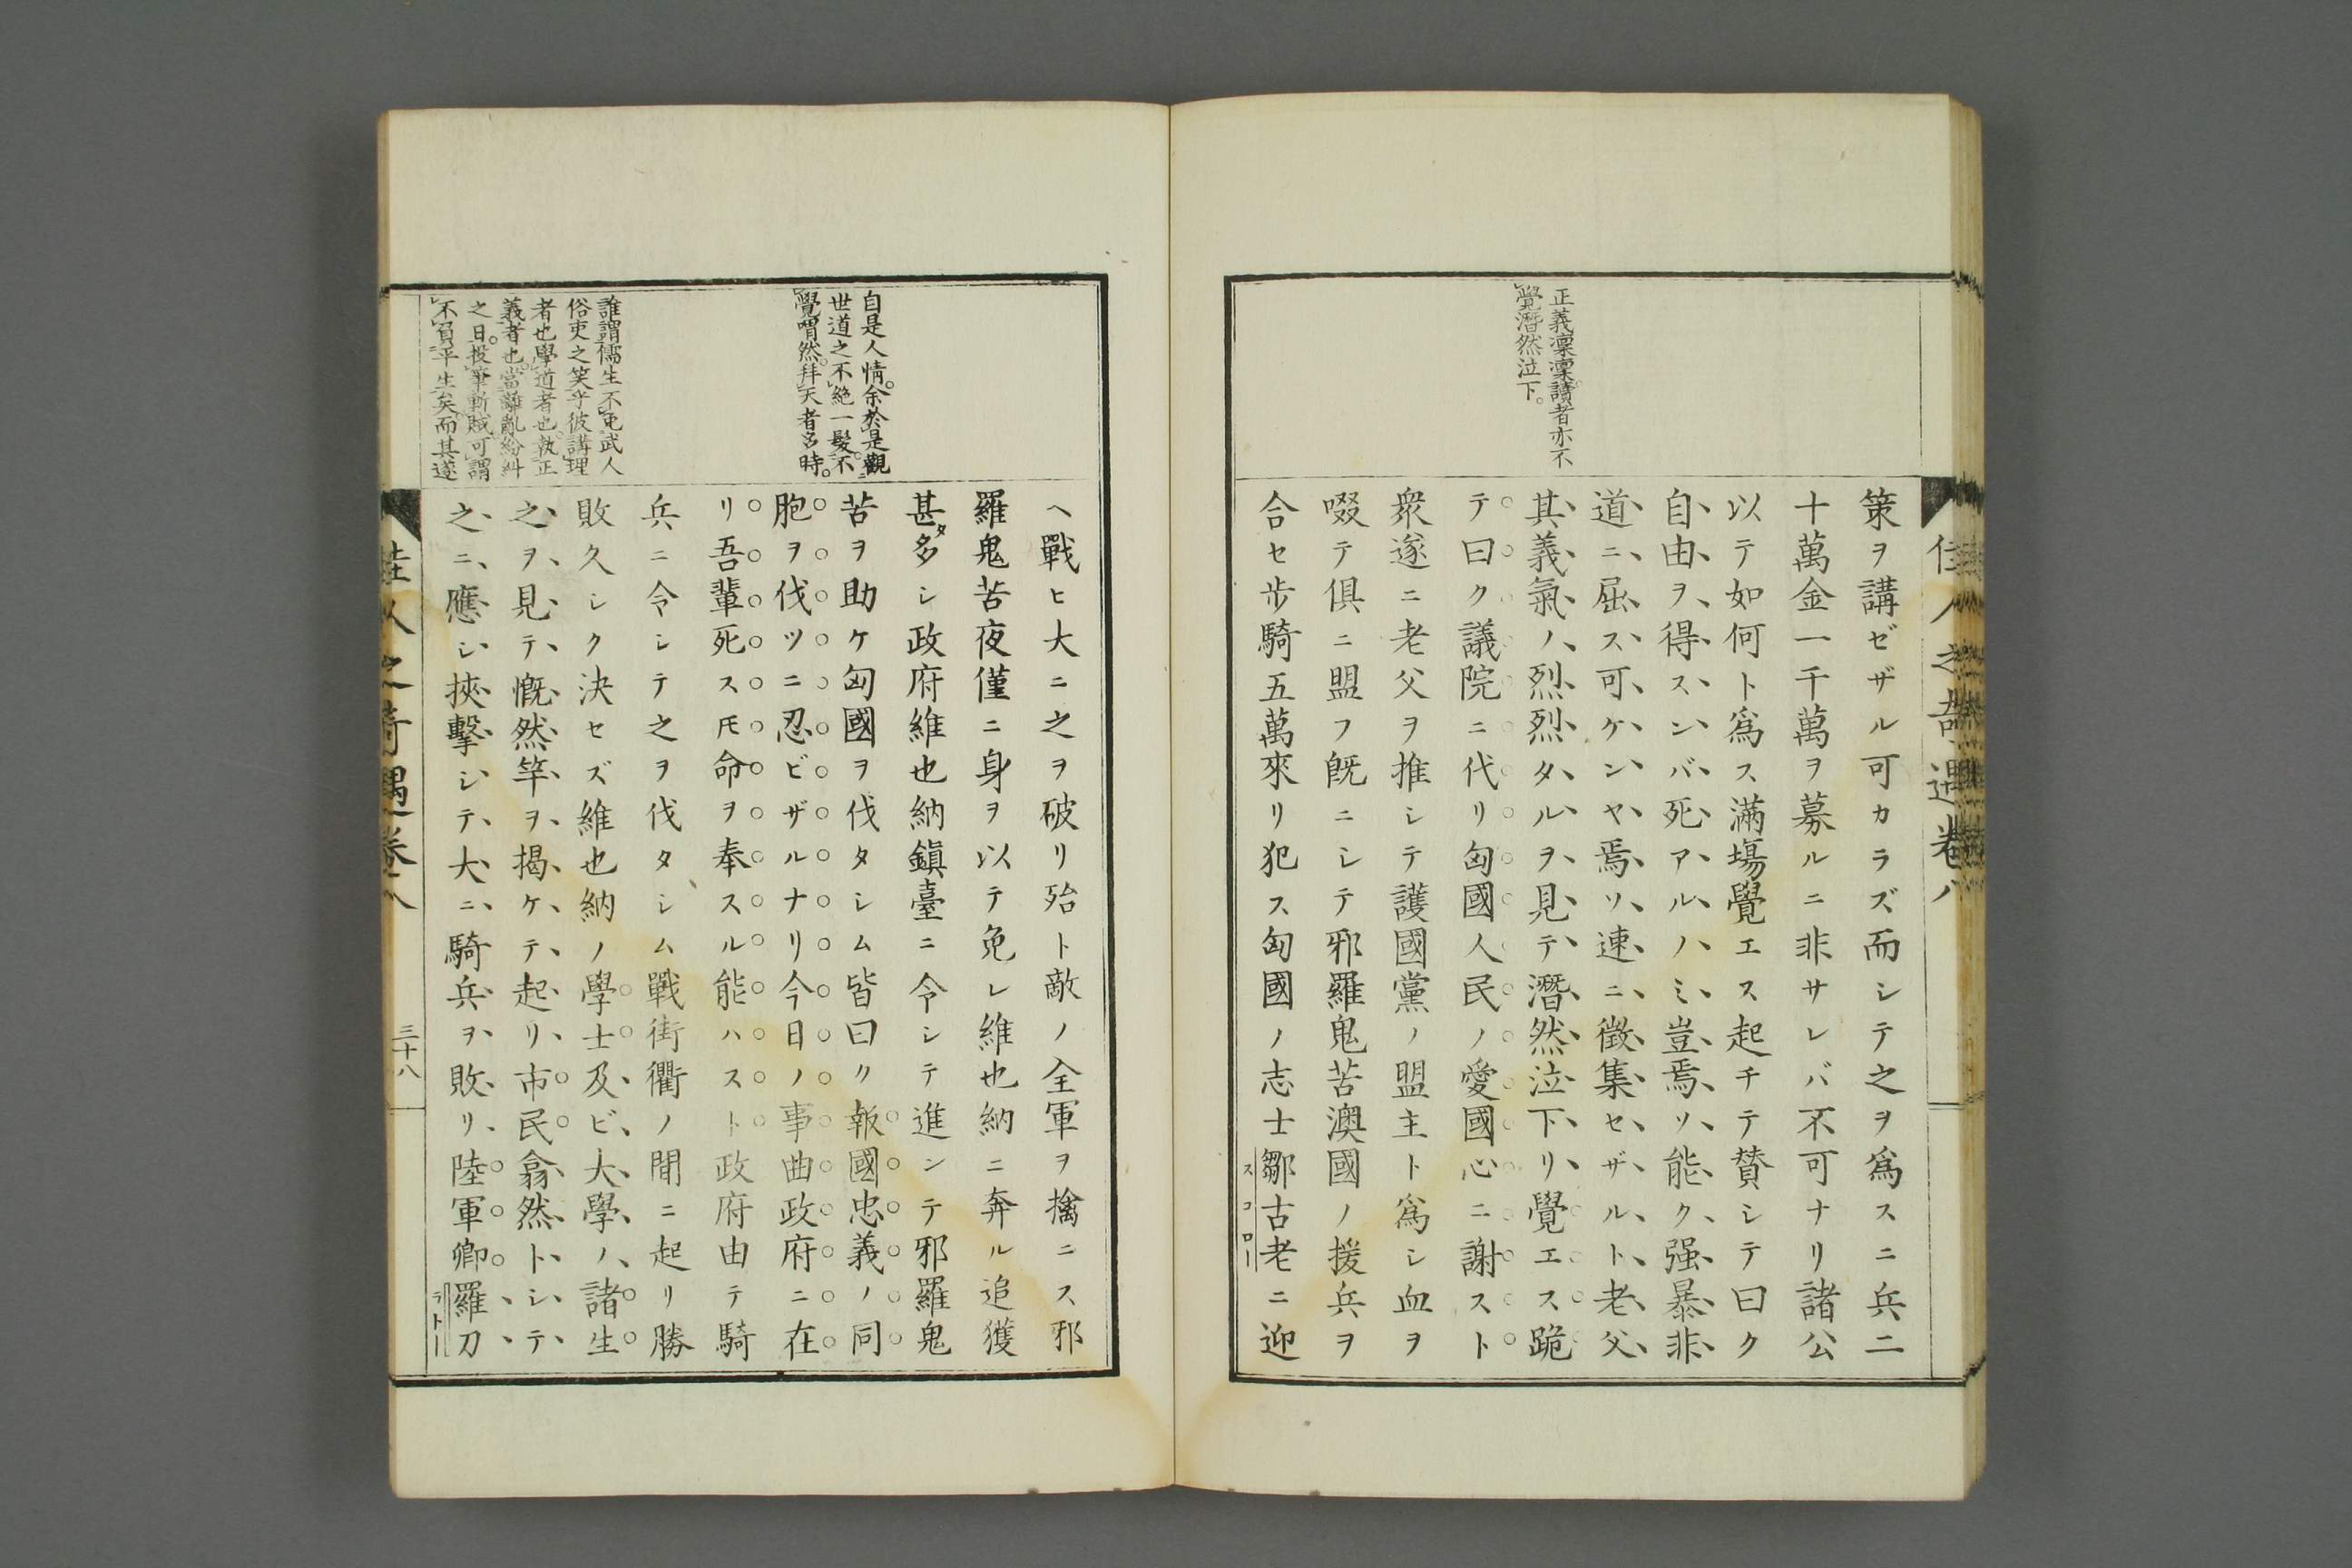 佳人之奇遇卷八
正義凜凜讀者亦不
覺潛然泣下。
策ヲ講ゼザル可カラズ而シテ之ヲ爲スニ兵二
十萬金一千萬ヲ募ルニ非サレバ不可ナリ諸公
以テ如何ト爲ス滿塲覺エス起チテ賛シテ曰ク
自由ヲ得スンバ死アルノミ豈焉ソ能ク强暴非
道ニ屈ス可ケンヤ焉ソ速ニ徵集セザルト老父
其義氣ノ烈烈タルヲ見テ潛然泣下リ覺エス跪
テ曰ク議院ニ代リ匈國人民ノ愛國心ニ謝スト
衆遂ニ老父ヲ推シテ護國黨ノ盟主ト爲シ血ヲ
啜テ俱ニ盟フ旣ニシテ邪羅鬼苦澳國ノ援兵ヲ
合セ步騎五萬來リ犯ス匈國ノ志士鄒古老ニ迎
スコロー
自是人情。余於是觀
世道之不絕一髮。不
覺喟然。拜天者多時。
誰謂儒生不免武人
俗吏之笑乎彼講理
者也學道者也。執正
義者也。當離亂紛糾
之日。投筆斬賊可謂
不負平生矣而其遂
ヘ戰ヒ大ニ之ヲ破リ殆ト敵ノ全軍ヲ擒ニス邪
羅鬼苦夜僅ニ身ヲ以テ免レ維也納ニ奔ル追獲
甚タ多シ政府維也納鎭臺ニ令シテ進ンテ邪羅鬼
苦ヲ助ケ匈國ヲ伐タシム皆曰ク報國忠義ノ同
胞ヲ伐ツニ忍ビザルナリ今日ノ事曲政府ニ在
リ吾輩死スモ命ヲ奉スル能ハスト政府由テ騎
兵ニ令シテ之ヲ伐タシム戰街衢ノ間ニ起リ勝
敗久シク決セズ維也納ノ學士及ビ大學ノ諸生
之ヲ見テ慨然竿ヲ揭ケテ起リ市民翕然トシテ
之ニ應シ挾擊シテ大ニ騎兵ヲ敗リ陸軍卿羅刀
ラトー
佳人之奇遇卷八
三十八